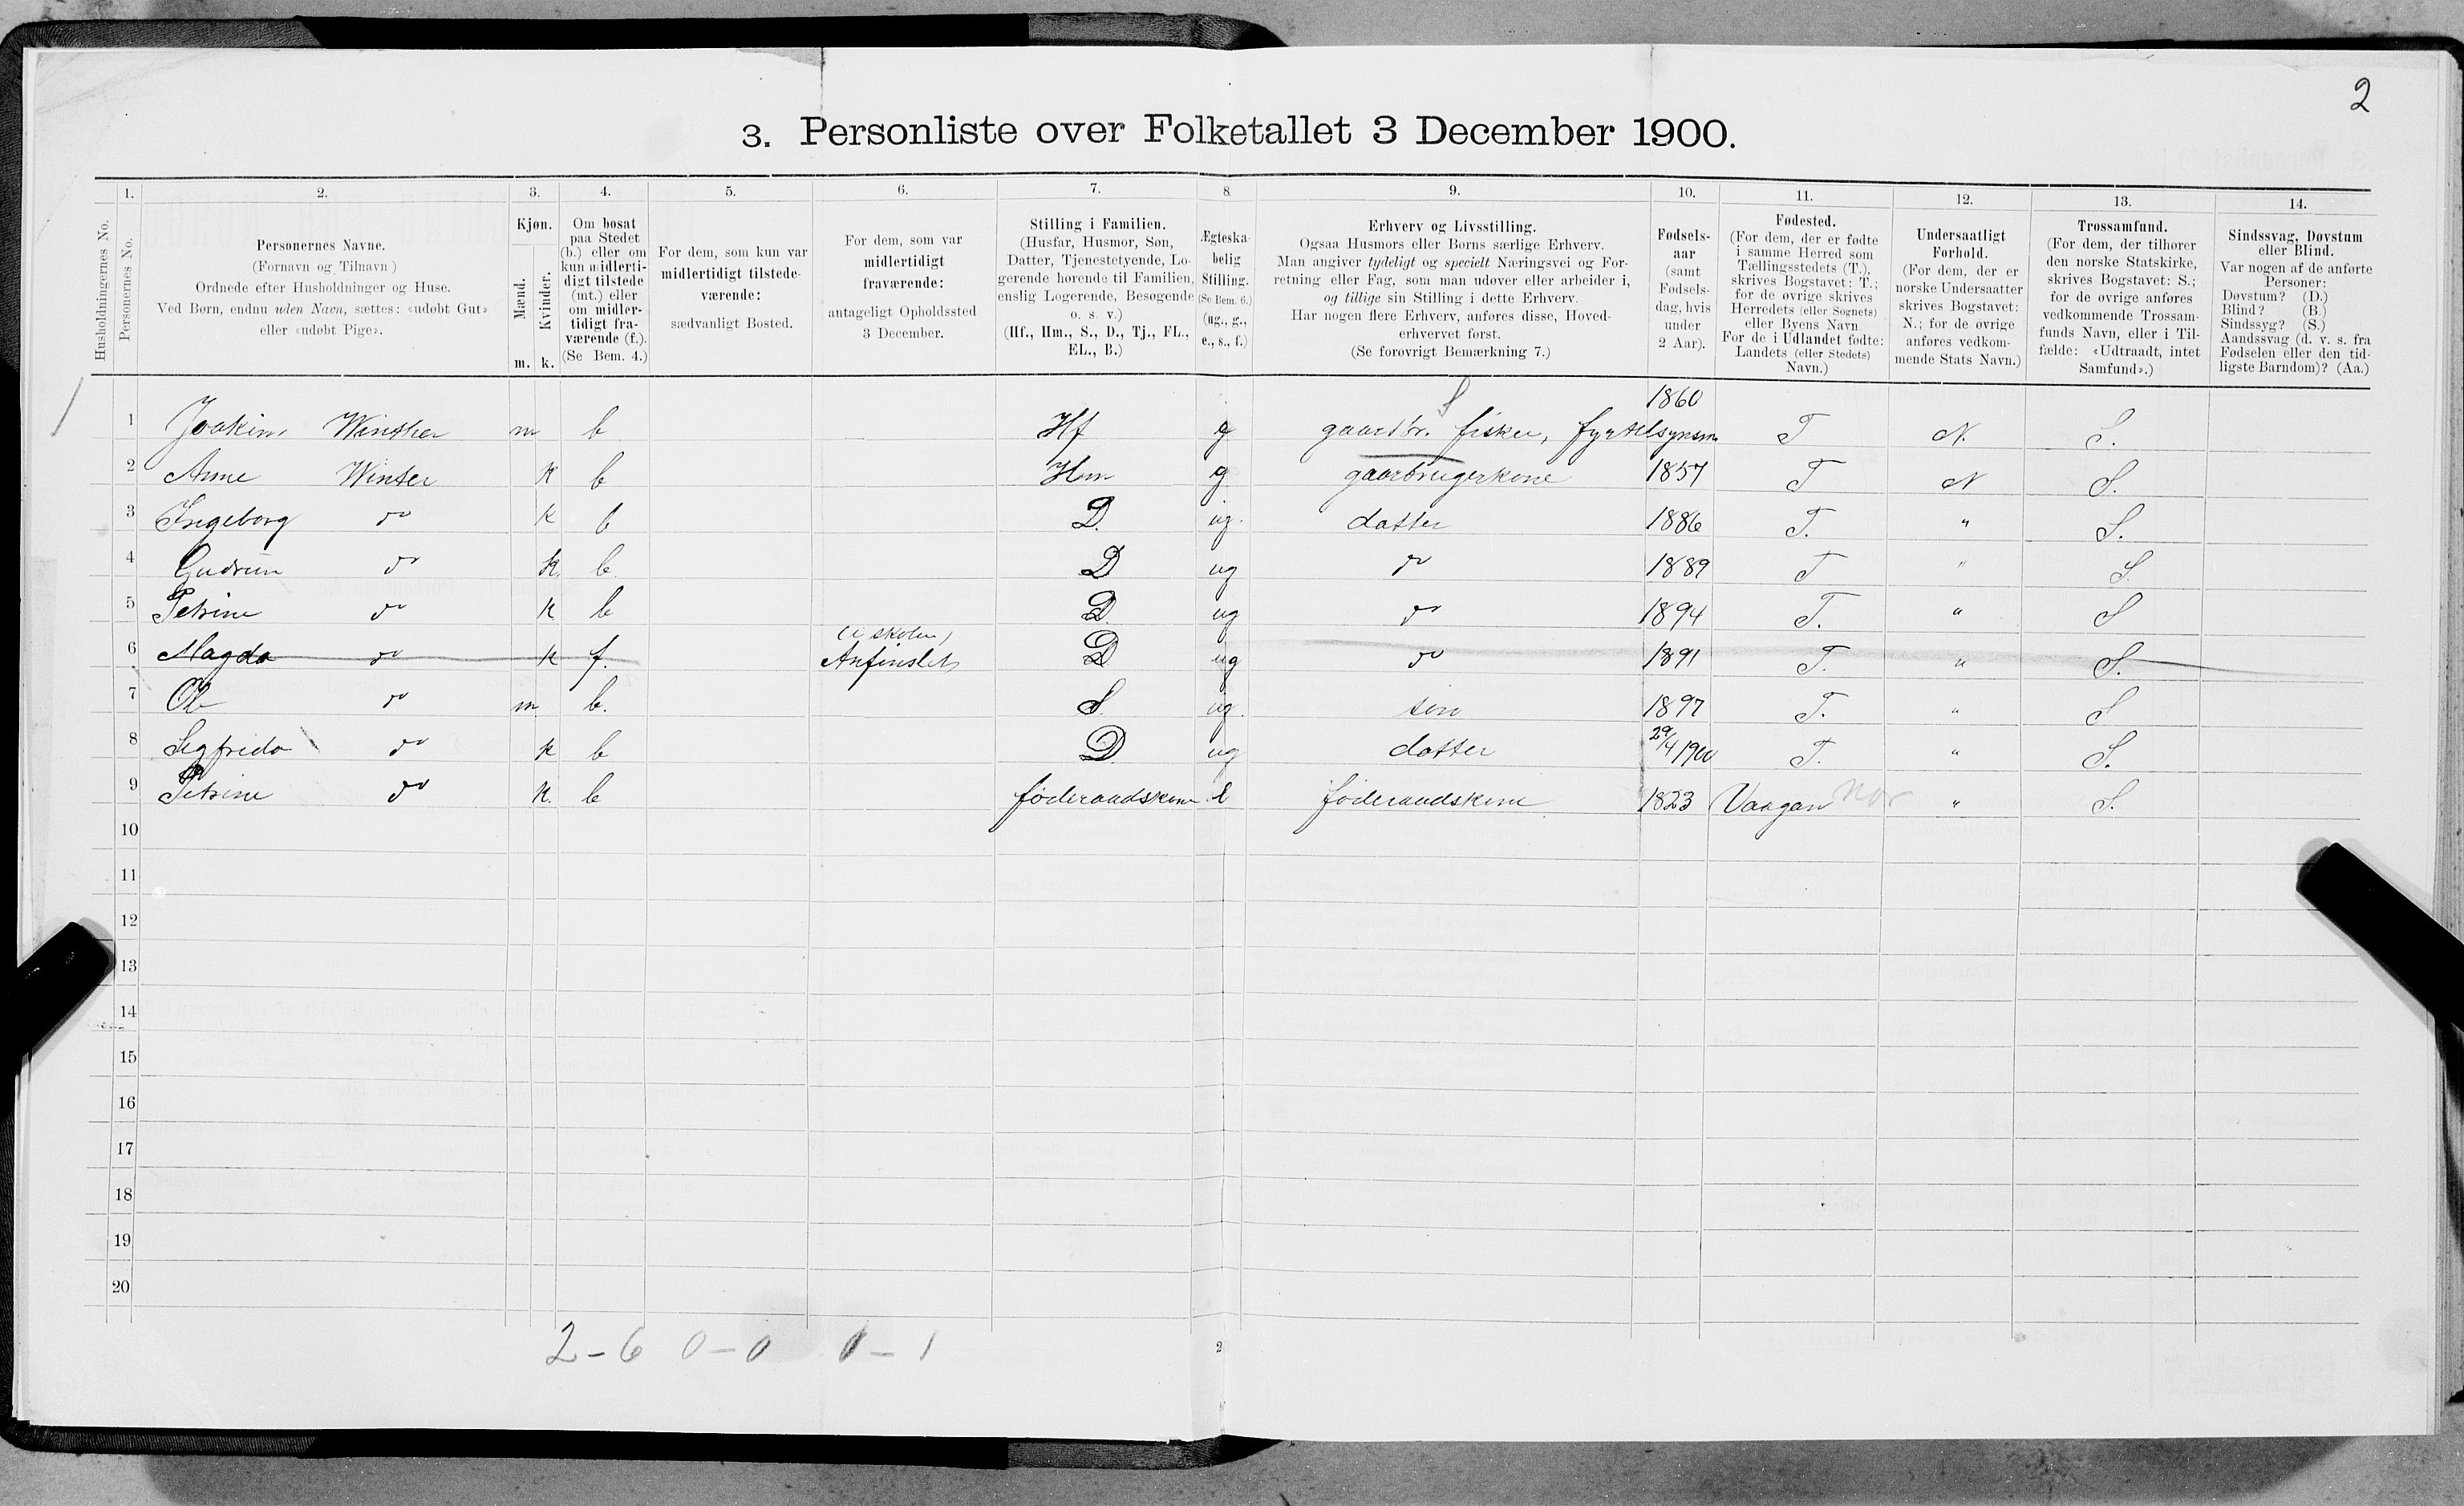 2
3. Personliste over Folketallet 3 December 1900.
1. 2. 3. 4. 5. 6. 7. 8 9. 10. 11. 12. 13. 14.
Husholdningernes No.
Personernes No.
Personernes Navne.
(Fornavn og Tilnavn)
Ordnede efter Husholdninger og Huse.
Ved Børn, endnu uden Navn, sættes: «udøbt Gut»
eller «udøbt Pige».
Kjøn.
Mænd.
Kvinder.
m. k.
Om bosat
paa Stedet
(b.) eller om
kun midlerti-
digt tilstede
(mt.) eller
om midler-
tidigt fra-
værende (f.).
(Se Bem. 4.)
For dem, som kun var
midlertidigt tilstede-
værende:
sædvanligt Bosted.
For dem, som var
midlertidigt
fraværende:
antageligt Opholdssted
3 December.
Stilling i Familien.
(Husfar, Husmor, Søn,
Datter, Tjenestetyende, Lo-
gerende hørende til Familien,
enslig Logerende, Besøgende
o. s. v.)
(Hf., Hm., S., D., Tj., FL.,
EL., B.)
Ægteska-
belig
Stilling.
(Se Bem. 6.)
(ug., g.,
e., s., f.)
Erhverv og Livsstilling.
Ogsaa Husmors eller Børns særlige Erhverv.
Man angiver tydeligt og specielt Næringsvei og For-
retning eller Fag, som man udøver eller arbeider i,
og tillige sin Stilling i dette Erhverv.
Har nogen flere Erhverv, anføres disse, Hoved-
erhvervet først.
(Se forøvrigt Bemærkning 7.)
Fødsels-
aar
(samt
Fødsels-
dag, hvis
under
2 Aar).
Fødested.
(For dem, der er fødte
i samme Herred som
Tællingsstedets (T.),
skrives Bogstavet: T.;
for de øvrige skrives
Herredets (eller Sognets)
eller Byens Navn.
For de i Udlandet fødte:
Landets (eller Stedets)
Navn.)
Undersaatligt
Forhold.
(For dem, der er
norske Undersaatter
skrives Bogstavet:
N.; for de øvrige
anføres vedkom-
mende Stats Navn.)
Trossamfund.
(For dem, der tilhører
den norske Statskirke,
skrives Bogstavet: S.;
for de øvrige anføres
vedkommende Trossam-
funds Navn, eller i Til-
fælde: «Udtraadt, intet
Samfund».)
Sindssvag, Døvstum
eller Blind.
Var nogen af de anførte
Personer:
Døvstum? (D.)
Blind? (B.)
Sindssyg? (S.)
Aandssvag (d. v. s. fra
Fødselen eller den tid-
ligste Barndom)? (Aa.)
S 1860
1 Joakim Winther m b Hf g gaardbr. fisker, fyrtilsynsm T N. S.
2 Anne Winter k b Hm g gaarbrugerkone 1857 T N S.
3 Ingeborg do k b D. ug. datter 1886 T. " S.
4 Gudrun do k. b. D ug do 1889 T " S.
5 Petrine do k b D. ug do 1894 T. " S
(i skolen)
6 Magda do k f. Anfinslet D ug do 1891 T. " S.
7 Ole do m. b. S. ug. søn 1897 T. " S
8 Sigfrida do k b D ug datter 29/4 1900 T. " S.
9 Petrine do k. b føderaadskone e føderaadskone 1823 Vaagan Nor " S.
10
11
12
13
14
15
16
17
18
19
20
2 - 6 0 - 0 0 - 1
2